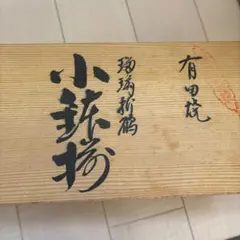 有田焼
瑠璃折鶴
小鉢揃